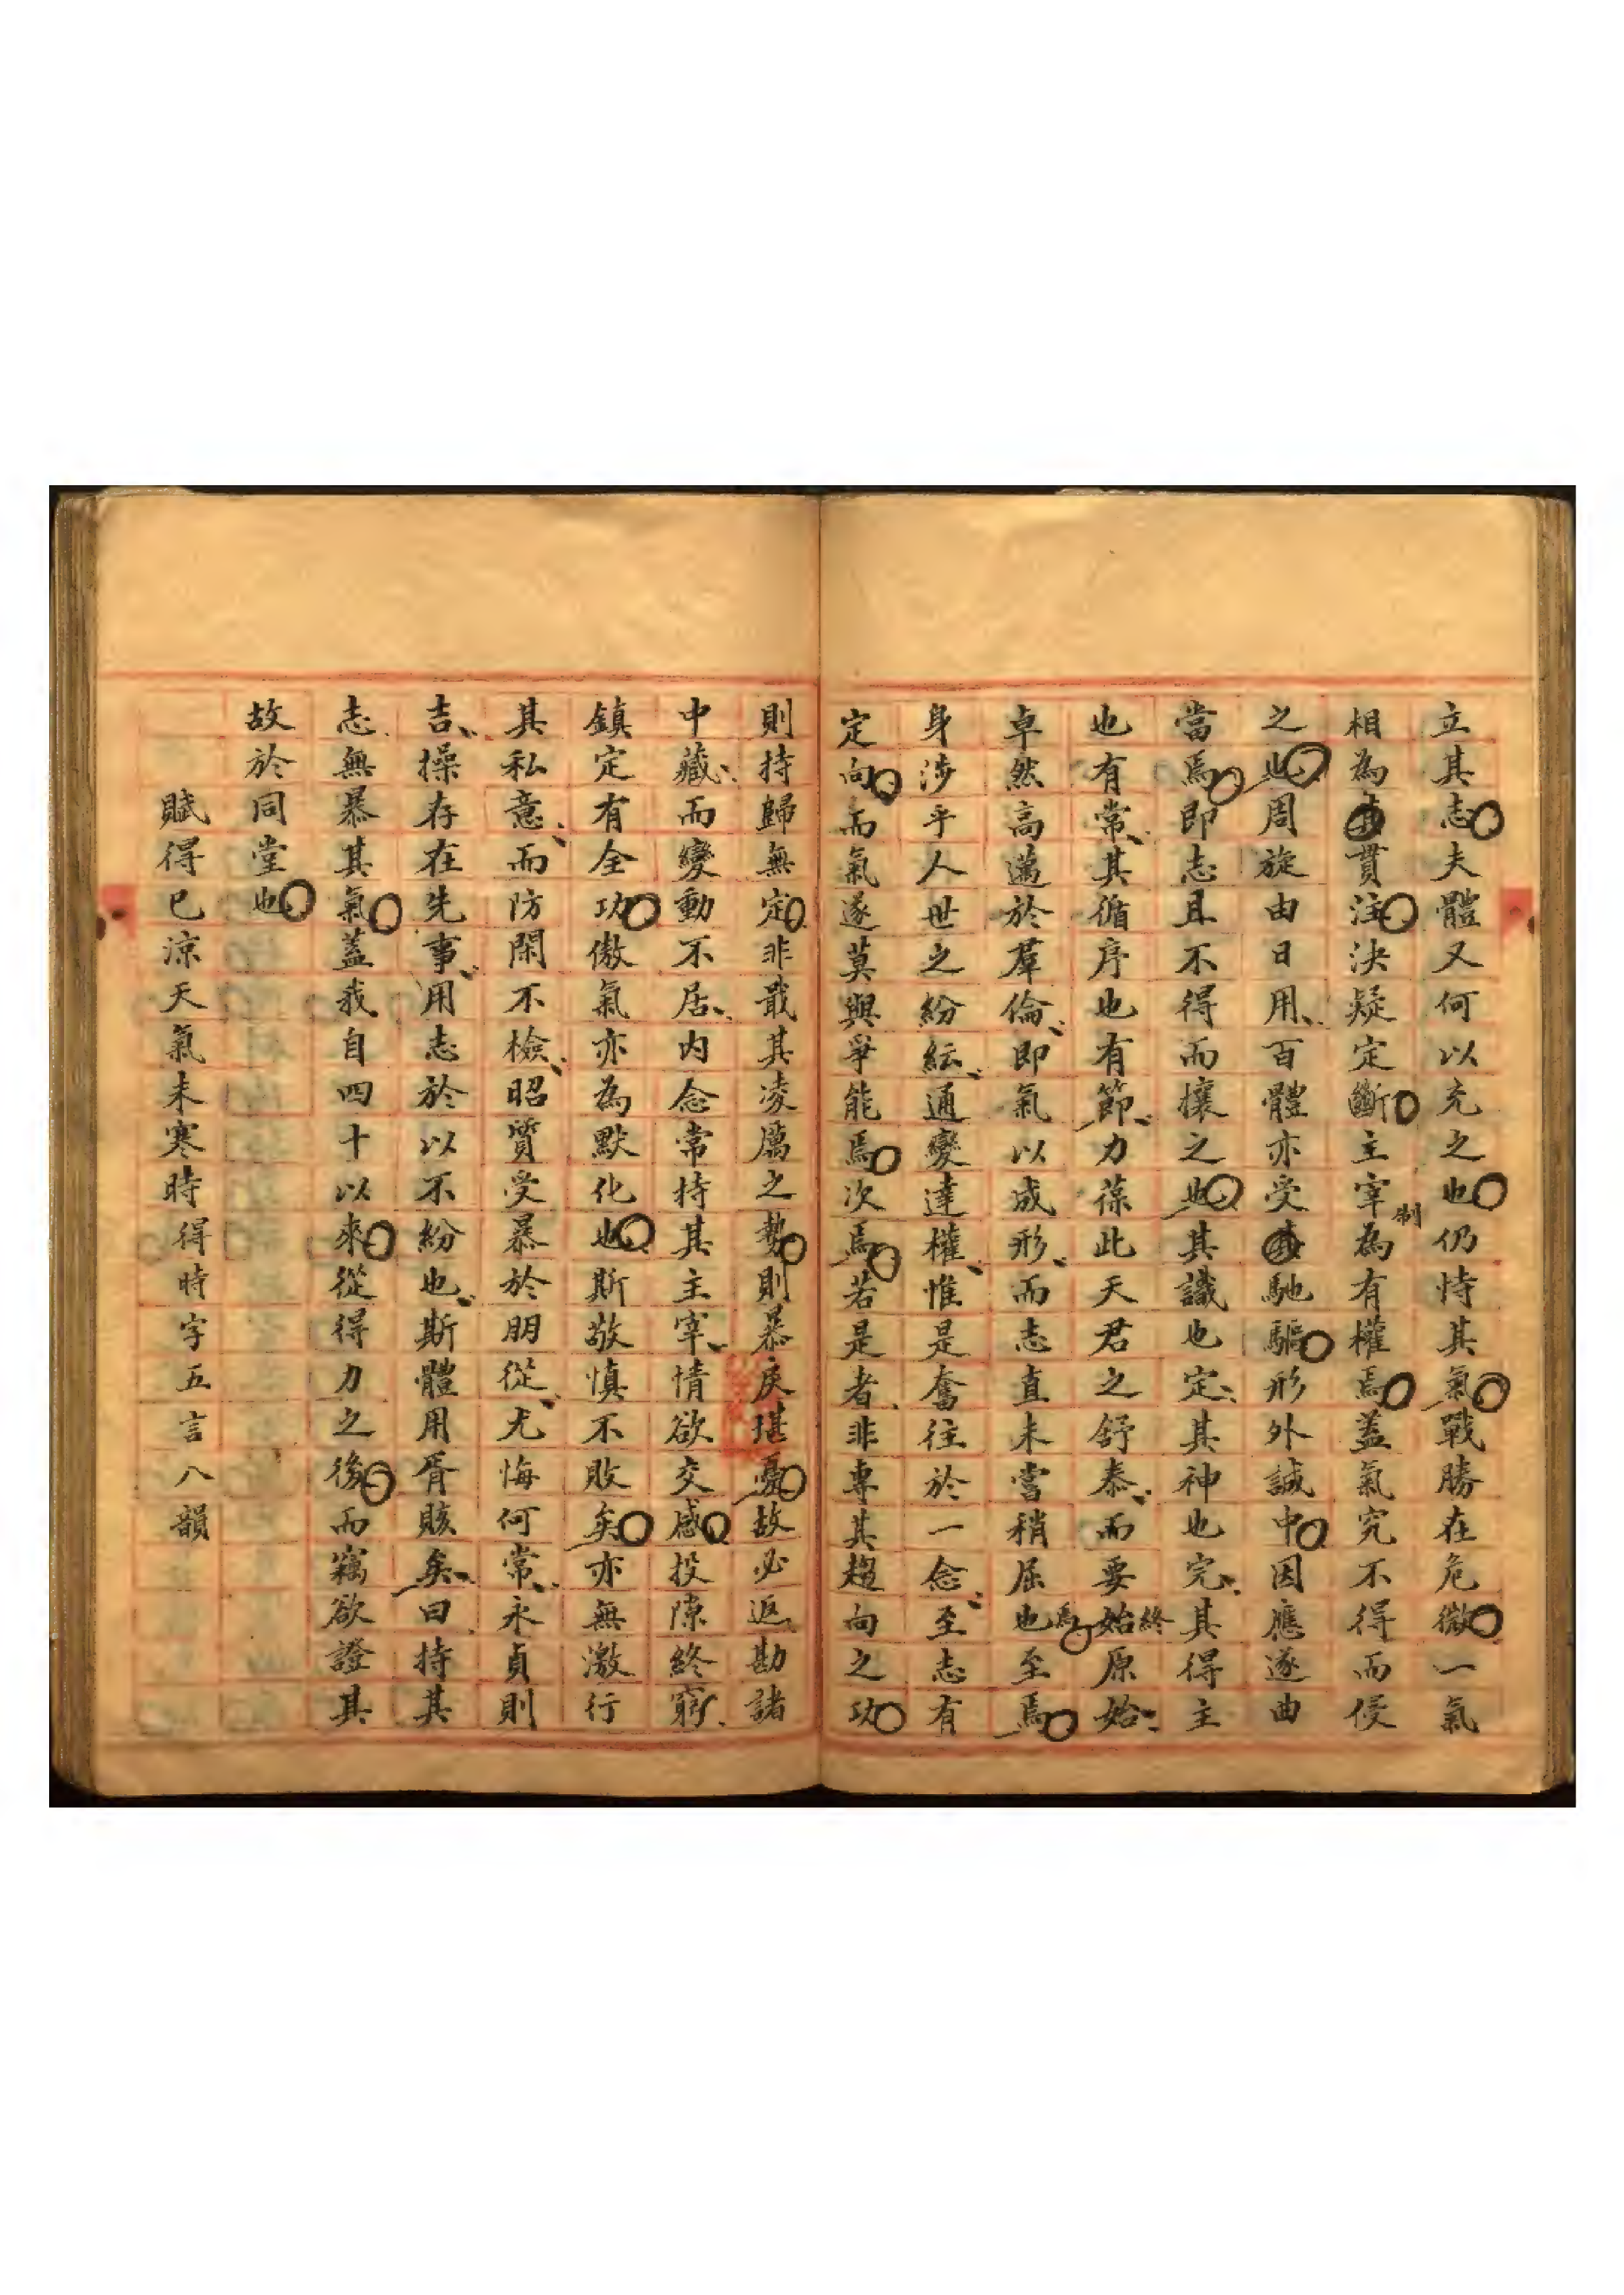 立其志夫體又何以充之也仍恃其氣戰勝在危微一氣
相為貫注決疑定斷主宰制為有權焉蓋氣究不得而侵
之也周旋由日用百體亦受馳驅形外誠中因應遂曲
當焉即志且不得而攘之也其識也定其神也完其得主
也有常其循序也有節力葆此天君之舒泰而要始終原始
卓然高邁於羣倫即氣以成形而志直未嘗稍屈也焉至焉
身涉乎人世之紛紜通變達權惟是奮往於一念至志有
定向而氣遂莫與爭能焉次焉若是者非專其趨向之功
則持歸無定非戢其凌厲之勢則暴戾堪憂故必返勘諸
中藏而變動不居內念常持其主宰情欲交感投隙終窮
鎮定有全功傲氣亦為默化也斯敬慎不敗矣亦無激行
其私意而防閑不檢昭質受暴於朋從尤悔何常永貞則
吉操存在先事用志於以不紛也斯體用胥賅矣曰持其
志無暴其氣蓋我自四十以來從得力之後而竊欲證其
故於同堂也
賦得已涼天氣未寒時得時字五言八韻